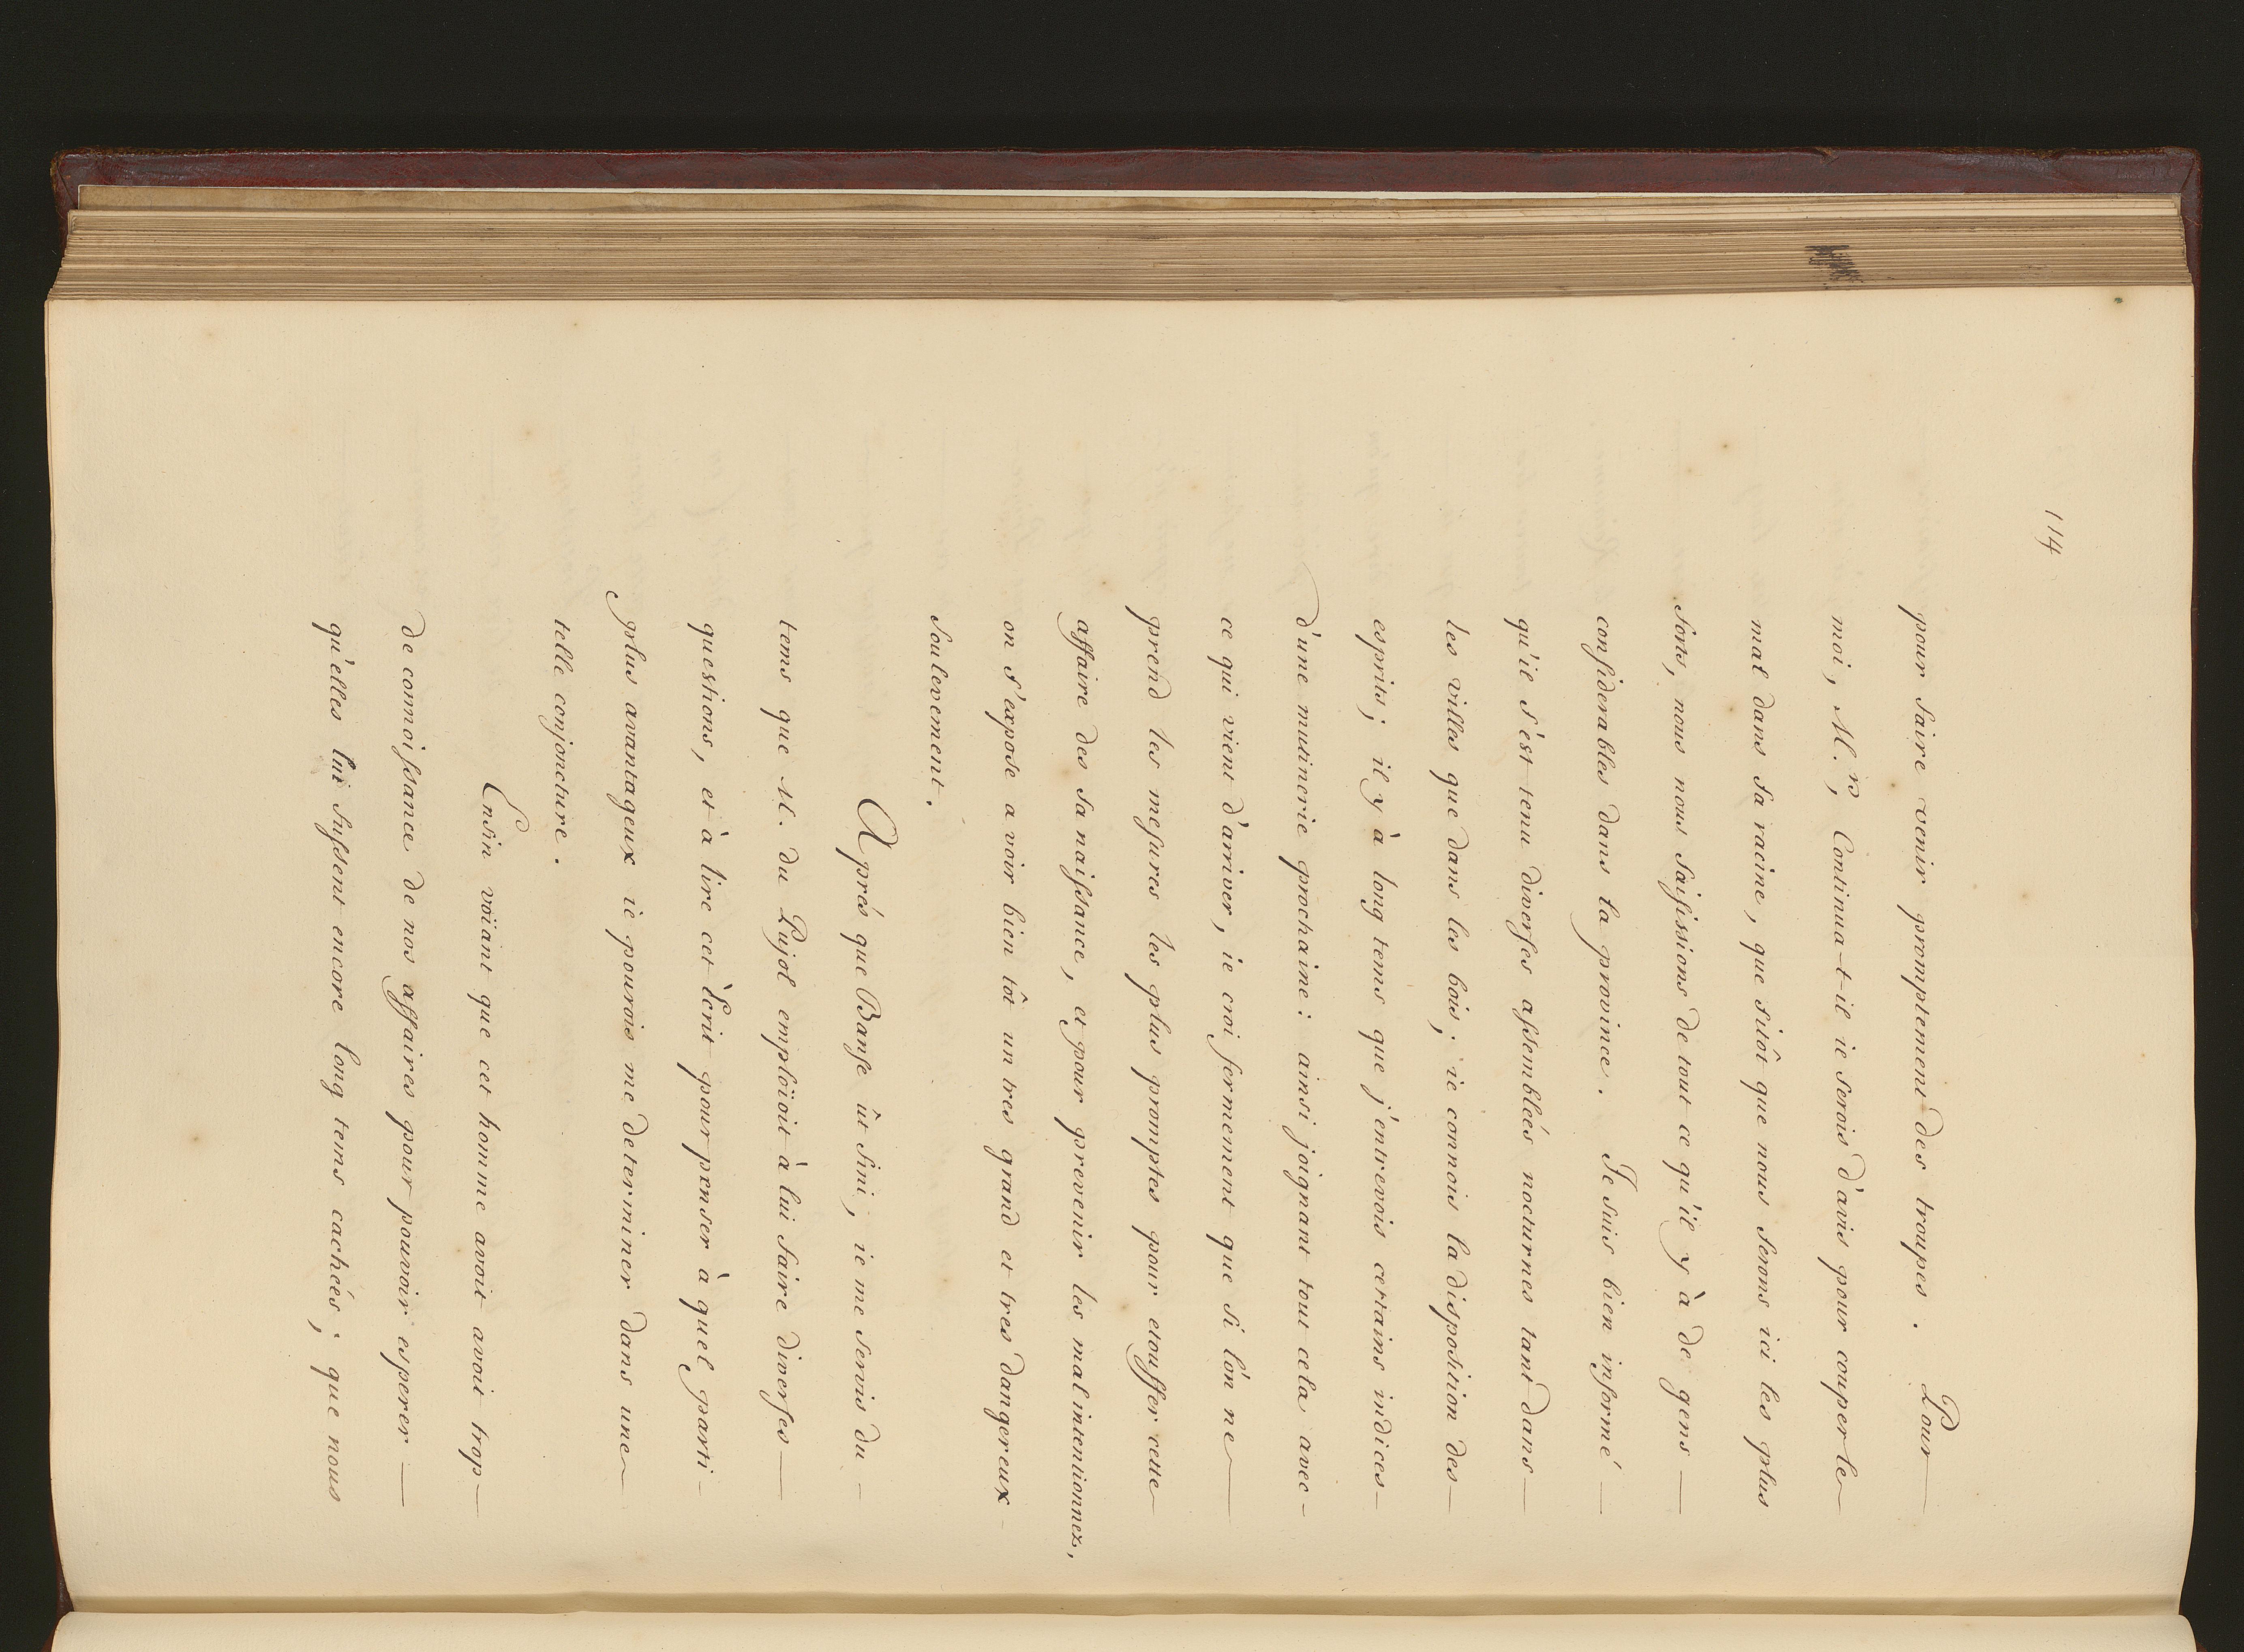 114
pour faire venir promptement des troupes. Pour
moi, M.rs, Continua-t-il ie serois d'avis pour couper le
mal dans sa racine, que sitôt que nous serons ici les plus
forts, nous nous saisissions de tout ce qu'il y à de gens
considerables dans la province. Je suis bien informé
qu'il s'est tenu diverses assemblés nocturnes tant dans
les villes que dans les bois; ie connois la disposition des
esprits; il y à long tems que j'entrevois certains indices
d'une mutinerie prochaine: ainsi joignant tout cela avec
ce qui vient d'arriver, ie croi fermement que si l'on ne
prend les mesures les plus promptes pour etouffer cette
affaire des sa naissance, et pour prevenir les mal intentionnez,
on s'expose a voir bien tôt un tres grand et tres dangereux
soulevement.
Aprés que Banse ût fini, ie me servis du
tems que M. du Pujol emploïoit à lui faire diverses
questions, et à lire cet Ecrit pour penser à quel parti
plus avantageux ie pourois me determiner dans une
telle conjoncture.
Enfin voïant que cet homme avoit avoit trop
de connoissance de nos affaires pour pouvoir esperer
qu'elles lui fussent encore long tems cachés; que nous